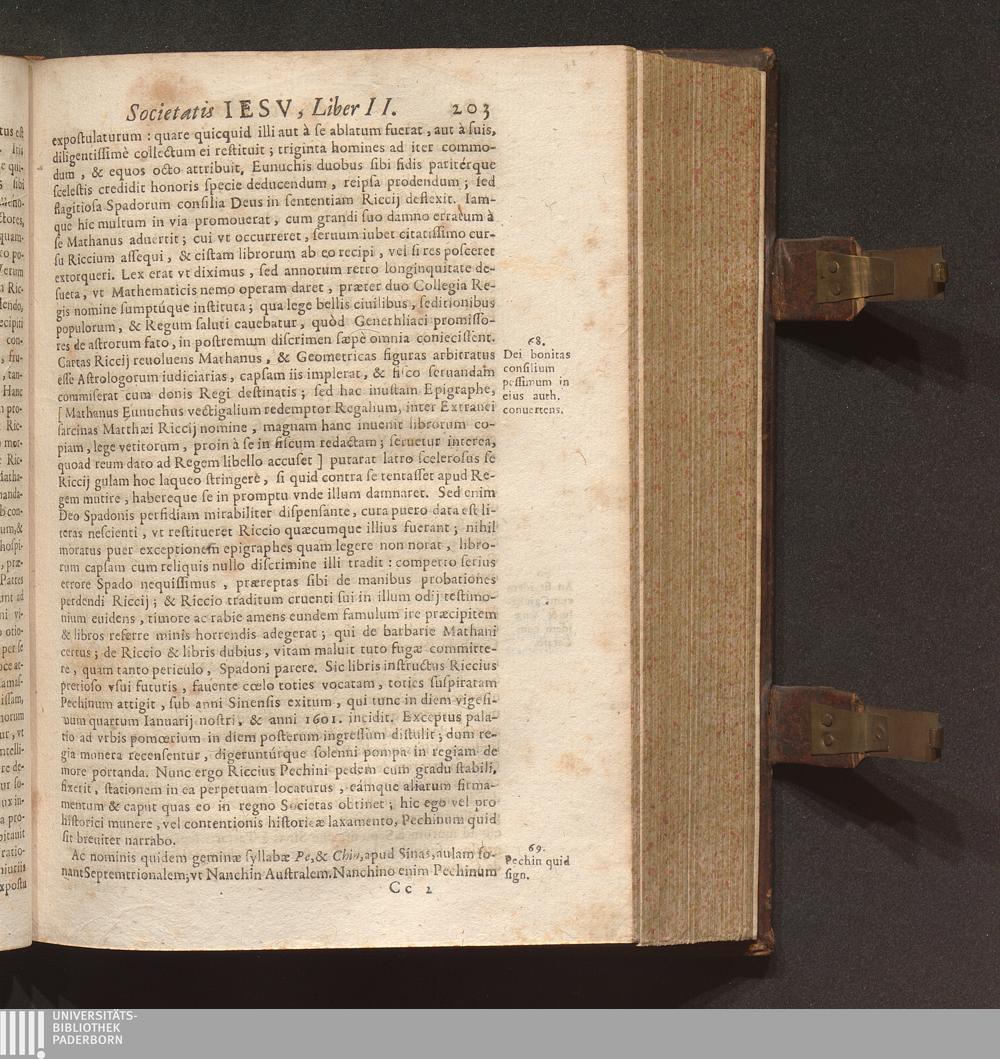 Societatis IESV, Liber II. 203
expostulaturum : quare quicquid illi aut à se ablatum fuerat, aut à suis,
diligentissimè collectum ei restituit ; triginta homines ad iter commo-
dum , & equos octo attribuit, Eunuchis duobus sibi fidis paritérque
scelestis credidit honoris specie deducendum , reipsa prodendum ; sed
flagitiosa Spadorum consilia Deus in sententiam Riccij deflexit. Iam-
que hic multum in via promouerat , cum grandi suo damno erratum à
se Mathanus aduertit ; cui vt occurreret , seruum iubet citatissimo cur-
su Riccium assequi , & cistam librorum ab eo recipi , vel si res posceret
extorqueri. Lex erat vt diximus , sed annorum retro longinquitate de-
sueta , vt Mathematicis nemo operam daret , præter duo Collegia Re-
gis nomine sumptúque instituta ; qua lege bellis ciuilibus, seditionibus
populorum , & Regum saluti cauebatur , quòd Genethliaci promisso-
res de astrorum fato, in postremum discrimen sæpè omnia coniecissent.
Cartas Riccij reuoluens Mathanus , & Geometricas figuras arbitratus
esse Astrologorum iudiciarias , capsam iis implerat, & fisco seruandam
commiserat cum donis Regi destinatis ; sed hac inustam Epigraphe,
[ Mathanus Eunuchus vectigalium redemptor Regalium, inter Extranei
sarcinas Matthæi Riccij nomine , magnam hanc inuenit librorum co-
piam, lege vetitorum , proin à se in fiscum redactam ; seruetur interea,
quoad reum dato ad Regem libello accuset ] putarat latro scelerosus se
Riccij gulam hoc laqueo stringere , si quid contra se tentasset apud Re-
gem mutire , habereque se in promptu vnde illum damnaret. Sed enim
Deo Spadonis perfidiam mirabiliter dispensante, cura puero data est li-
teras nescienti , vt restitueret Riccio quæcumque illius fuerant ; nihil
moratus puer exceptionem epigraphes quam legere non norat , libro-
rum capsam cum reliquis nullo discrimine illi tradit : comperto serius
errore Spado nequissimus , præreptas sibi de manibus probationes
perdendi Riccij ; & Riccio traditum cruenti sui in illum odij testimo-
nium euidens , timore ac rabie amens eundem famulum ire præcipitem
& libros referre minis horrendis adegerat ; qui de barbarie Mathani
certus ; de Riccio & libris dubius , vitam maluit tuto fugæ committe-
re , quam tanto periculo , Spadoni parere. Sic libris instructus Riccius
pretioso vsui futuris , fauente cœlo toties vocatam , toties suspiratam
Pechinum attigit , sub anni Sinensis exitum , qui tunc in diem vigesi-
mum quartum Ianuarij nostri , & anni 1601. incidit. Exceptus pala-
tio ad vrbis pomœrium in diem posterum ingressum distulit ; dum re-
gia munera recensentur , digeruntúrque solenni pompa in regiam de
more portanda. Nunc ergo Riccius Pechini pedem cum gradu stabili,
fixerit , stationem in ea perpetuam locaturus , eámque aliarum firma-
mentum & caput quas eo in regno Societas obtinet ; hic ego vel pro
historici munere , vel contentionis historicæ laxamento, Pechinum quid
sit breuiter narrabo.
Ac nominis quidem geminæ syllabæ Pe, & Chin, apud Sinas, aulam so-
nant Septemtrionalem; vt Nanchin Australem. Nanchino enim Pechinum
Cc 2
68.
Dei bonitas
consilium
pessimum in
eius auth.
conuertens.
69.
Pechin quid
sign.
UNIVERSITÄTS-
BIBLIOTHEK
PADERBORN